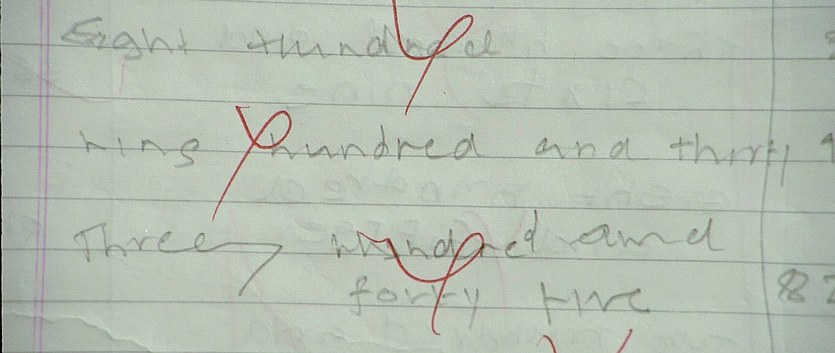 Eight hundred
hundred and thirty 9
Three hundred and
forty five 8